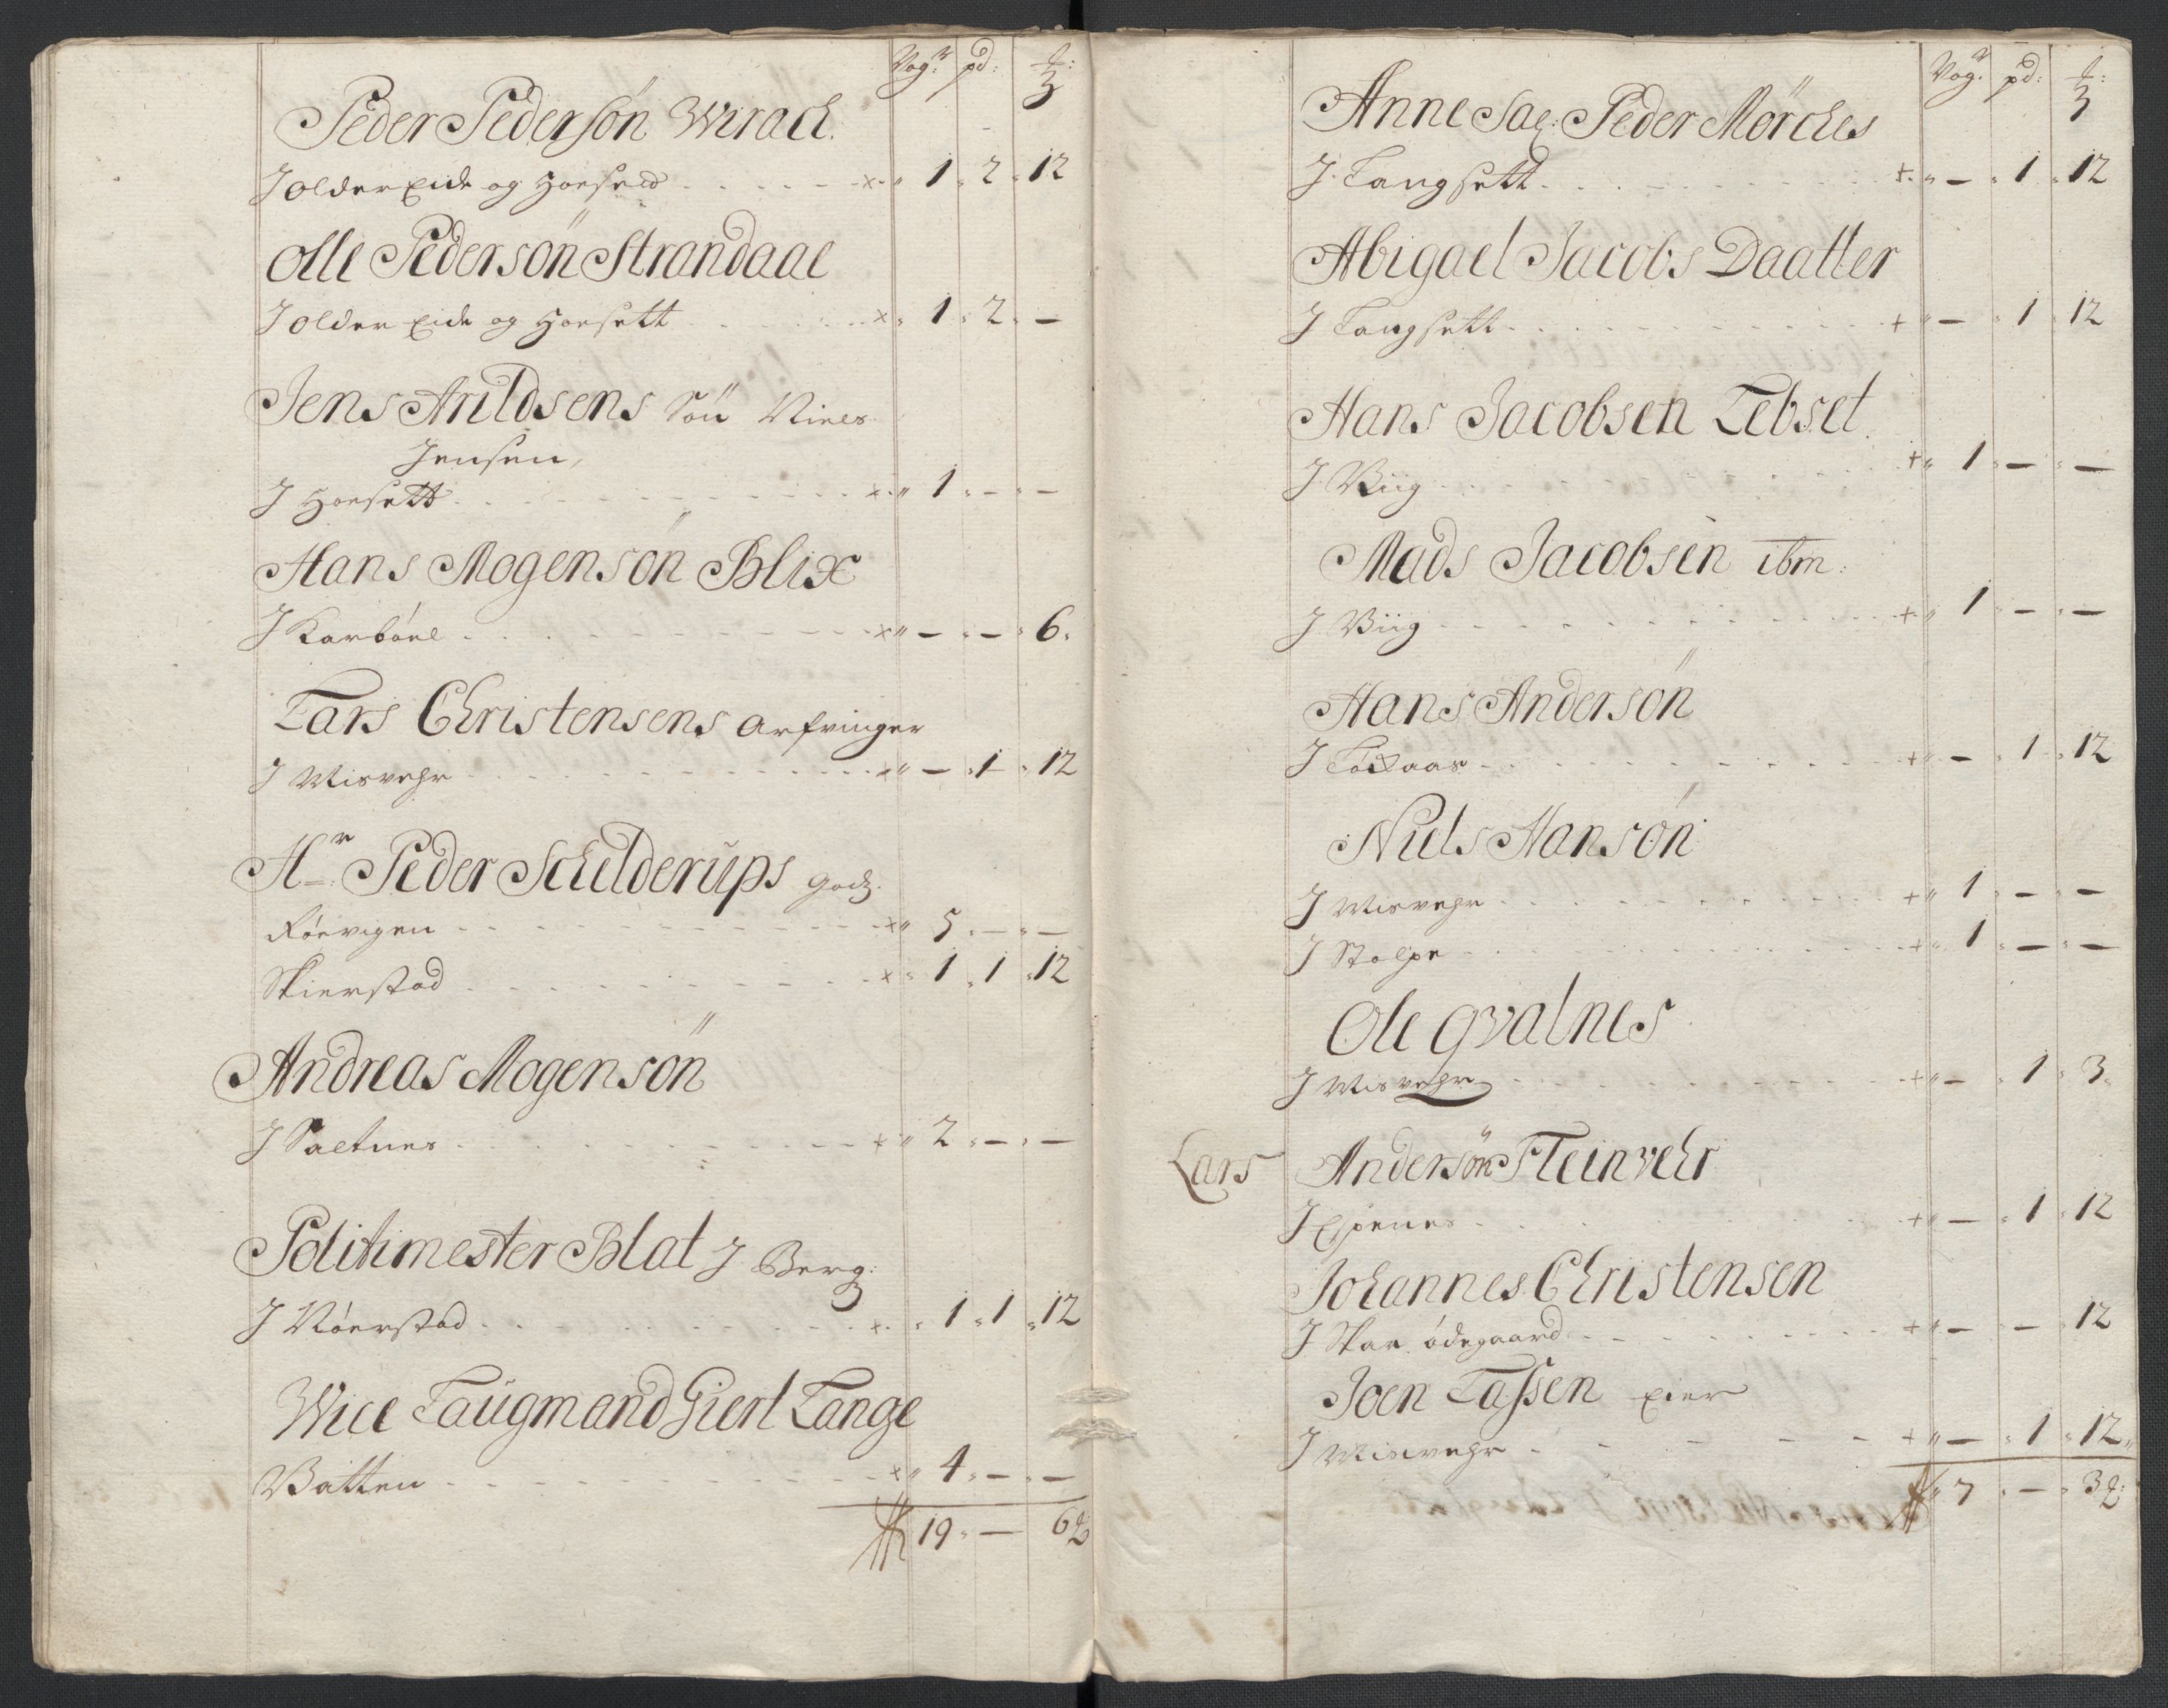 Vog:r pd: ℔:
Peder Pedersøn Wirach.
J Older Eide og Horsett - - - x „ 1 „ 2 „ 12
Olle Pedersøn Strandaae
J Older Eide og Horsett - - - x „ 1 „ 2 „ —
Jens Arildsens Søn Niels
Jensen,
J Horsett - - - x „ 1 „ — „ —
Hans Mogensøn Blix
J Karbøel - - - x „ — „ — „ 6.
Lars Christensens Arfvinger
J Misvehr - - - x „ — „ 1 „ 12
Hr: Peder Schelderups godz.
Røevigen - - - x „ 5 „ — „ —
Skierstad - - - x „ 1 „ 1 „ 12
Andreas Mogensøn
J Saltnes - - - x „ 2 „ — „ —
Politimester Blat J Berg:
J Røerstad - - - x „ 1 „ 1 „ 12
Wice Laugmand Giert Lange
Vatten - - - x „ 4 „ — „ —
19 „ — 6 ℔
Vog:r pd: ℔:
Anne Sal: Peder Mørches
J Langsett - - - + „ — „ 1 „ 12
Abigael Jacobs Daatter
J Langsett - - - + „ — „ 1 „ 12
Hans Jacobsen Lebset
J Viig - - - + „ 1 „ — „ —
Mads Jacobsen ibm:
J Viig - - - + „ 1 „ — „ —
Hans Andersøn
J Løxaas - - - + „ — „ 1 „ 12
Niels Hansøn
J Misvehr - - - + „ 1 „ — „ —
J Stolpe - - - + „ 1 „ — „ —
Ole Qvalnes
J Misvehr - - - + „ — „ 1 „ 3.
Lars Andersøn Fleinvehr
J Espenes - - - + „ — „ 1 „ 12
Johannes Christensen
J Skar ødegaard - - - + „ — „ — „ 12
Joen Lassen Eier
J Misvehr - - - + „ — „ 1 „ 12„
7 „ — „ 3 ℔: